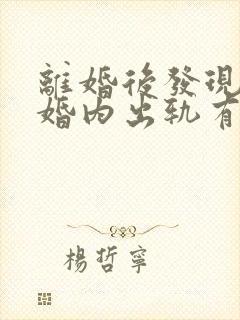 離婚後發現
婚内出軌有
楊哲寧